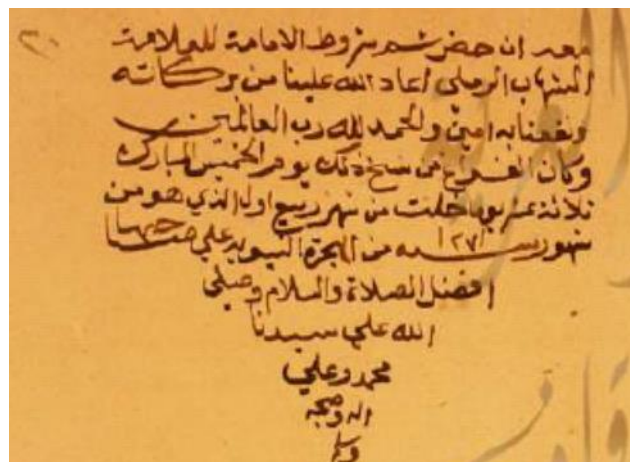 بعد ان حضر شرح شروط الامامة للعلامة
الشهاب الرملي اعاد الله علينا من بركاته
ونفعنا به امين والحمد لله رب العالمين
وكان الفراغ من نسخ ذلك يوم الخميس المبارك
ثلاثة عشر يوما خلت من شهر ربيع اول الذي هو من
شهور سنه ١٢٧١ من الهجرة النبويه علي صاحبها
افضل الصلاة والسلام وصلى
الله علي سيدنا
محمد وعلي
اله وصحبه